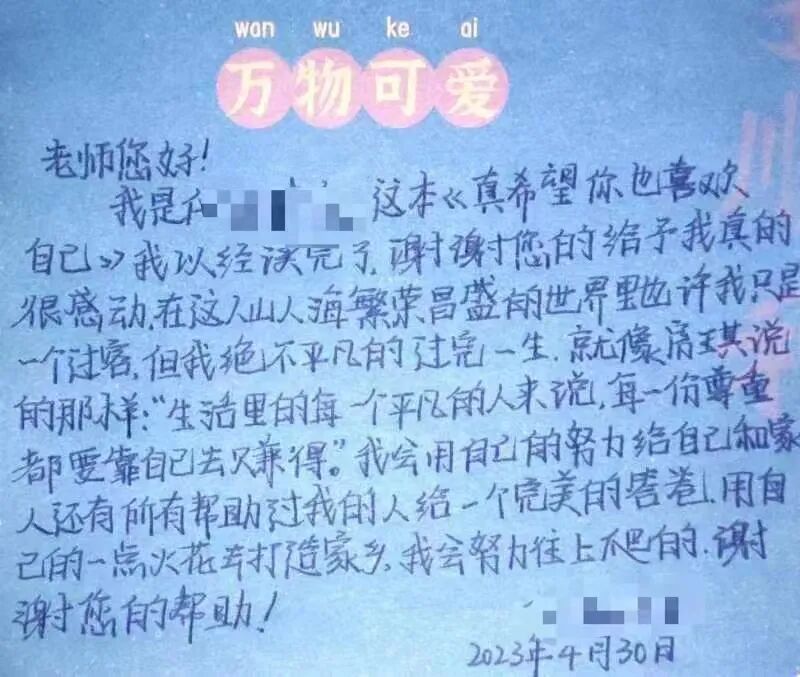 wan wu ke ai
万物可爱
老师您好!
我是 这本《真希望你也喜欢
自己》我以经读完了,谢谢您的给予我真的
很感动,在这人山人海繁荣昌盛的世界里也许我只是
一个过客,但我绝不平凡的过完一生,就像 说
的那样:“生活里的每一个平凡的人来说,每一份尊重
都要靠自己去赚得。”我会用自己的努力给自己和家
人还有所有帮助过我的人给一个完美的答卷,用自
己的一点火花去打造家乡,我会努力往上爬的,谢
谢您的帮助!
2023年4月30日